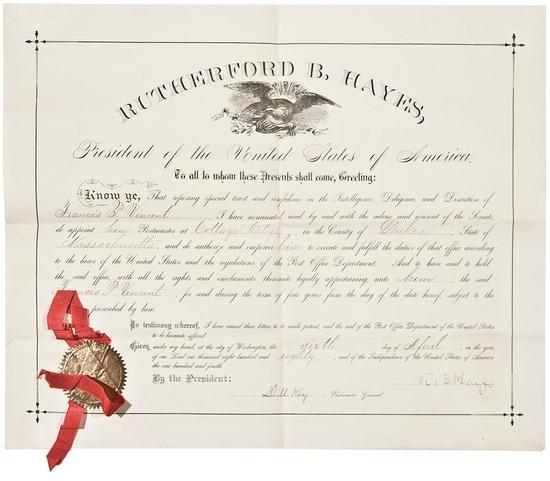 RUTHERFORD B. HAYES,
President of the United States of America.
To all to whom these Presents shall come, Greeting:
Know ye, That reposing special trust and confidence in the Intelligence, Diligence, and Discretion of
Francis P. Vincent, I have nominated, and by and with the advice and consent of the Senate,
do appoint him Postmaster at Cottage City, in the County of Dukes, State of
Massachusetts, and do authorize and empower him to execute and fulfil the duties of that office according
to the laws of the United States and the regulations of the Post Office Department. And to have and to hold
the said office, with all the rights and emoluments thereunto legally appertaining, unto him the said
Francis P. Vincent, for and during the term of four years from the day of the date hereof, subject to the
prescribed by law.
In testimony whereof, I have caused these letters to be made patent, and the seal of the Post Office Department of the United States
to be hereunto affixed.
Given under my hand, at the city of Washington, the sixth day of April, in the year
of our Lord one thousand eight hundred and eighty, and of the Independence of the United States of America
the one hundred and fourth.
By the President:
R. B. Hayes
D. M. Key, Postmaster General